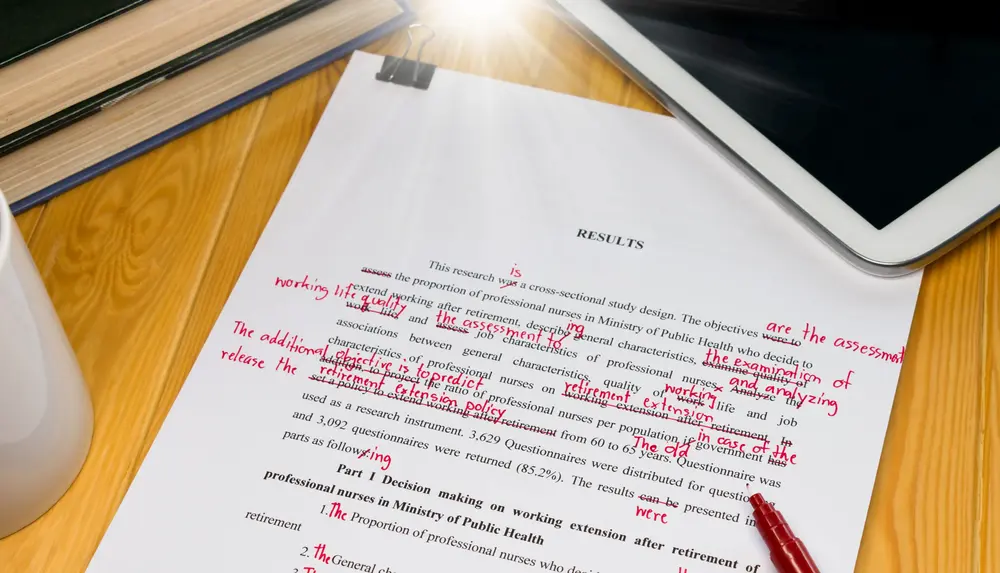 RESULTS
is
This research was a cross-sectional study design. The objectives were to
are the assessmet
assess the proportion of professional nurses in Ministry of Public Health who decide to
ing
extend working after retirement, describe general characteristics, examine quality of
the examination of
working life quality
the assessment to
work life and assess job characteristics of professional nurses. Analyze the
and analyzing
working
associations between general characteristics, quality of work life and job
retirement extension
characteristics of professional nurses on working extension after retirement. In
The additional objective is to predict
in case of the
addition, to project the ratio of professional nurses per population if government has
release the retirement extension policy
The old
set a policy to extend working after retirement from 60 to 65 years. Questionnaire was
used as a research instrument. 3,629 Questionnaires were distributed for
and 3,092 questionnaires were returned (85.2%). The results can be presented in
were
parts as follow ing
Part 1 Decision making on working extension after retirement of
professional nurses in Ministry of Public Health
1. The Proportion of professional nurses who
retirement
2. the General